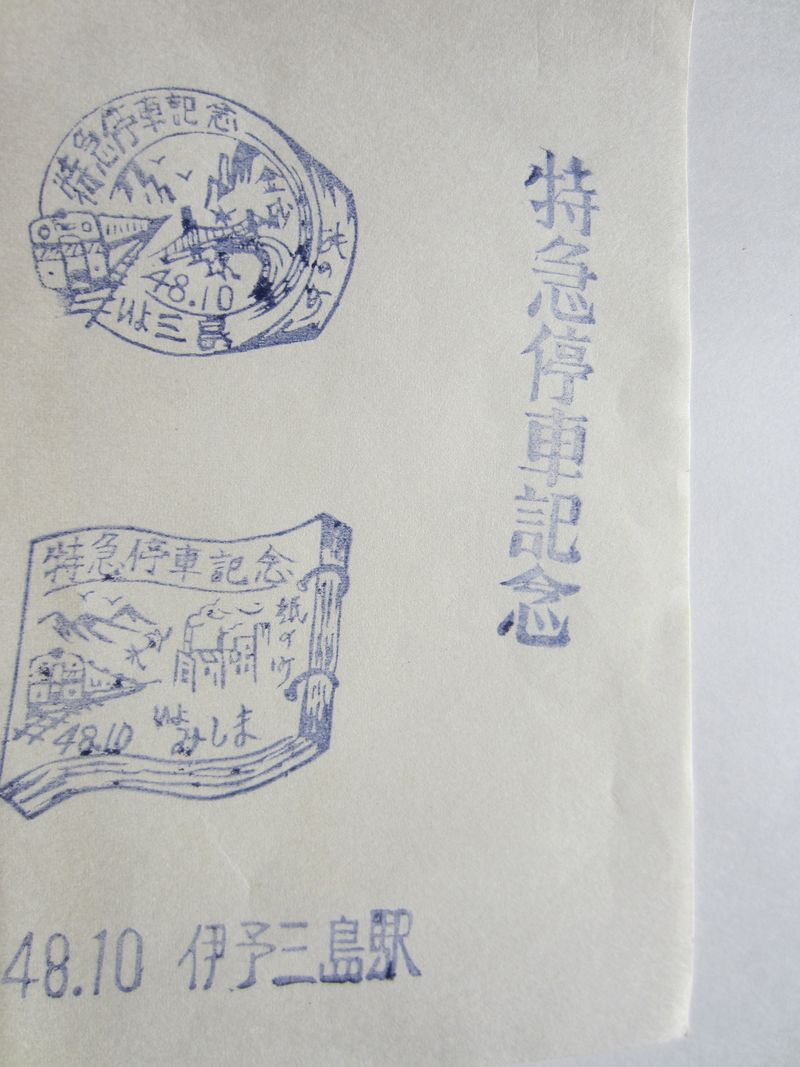 特急停車記念
特急停車記念
紙の町
48.10
いよ三島
特急停車記念
紙の町
48.10
いよ
みしま
48.10 伊予三島駅